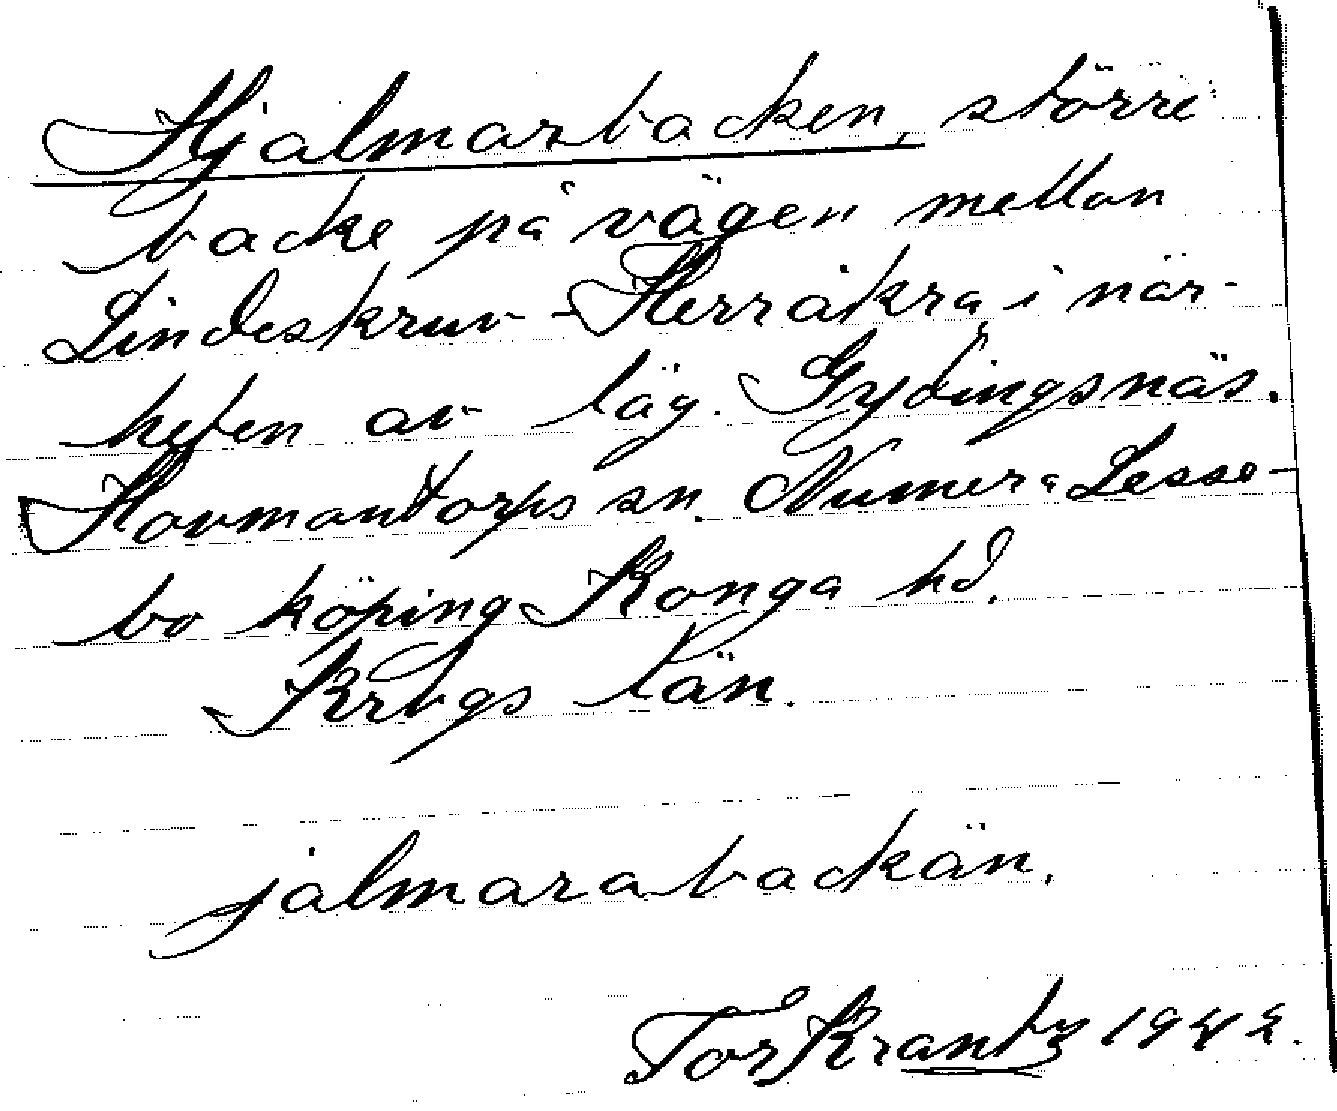 Hjalmarbacken, större
backe på vägen mellan
Lindeskruv - Herråkra i när-
heten av läg. Gydingsnäs.
Hovmantorps sn. Numera Lesse-
bo köping Konga hd.
Krbgs län.
jalmarabackän.
Tor Krantz 1942.